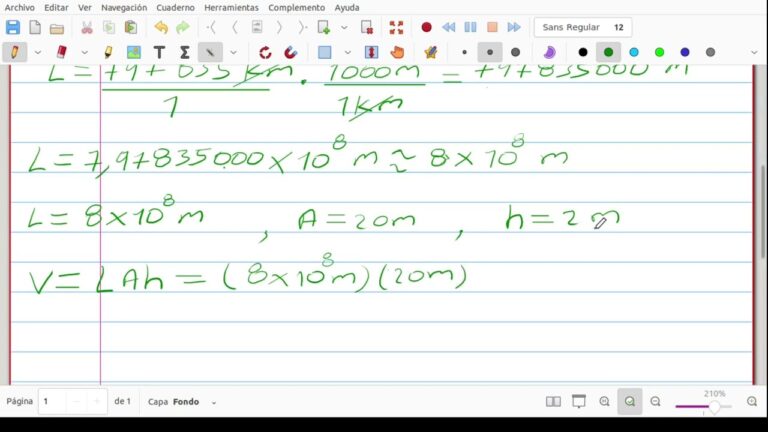 Archivo Editar Ver Navegación Cuaderno Herramientas Complemento Ayuda
Sans Regular 12
L = 797835 km/1 · 1000m/1km = 797835000 m
L = 7,97835000 × 10^8 m ≈ 8 × 10^8 m
L = 8 × 10^8 m , A = 20m , h = 2 m
V = L A h = (8 × 10^8 m) (20m)
Página 1 de 1 Capa Fondo 210%